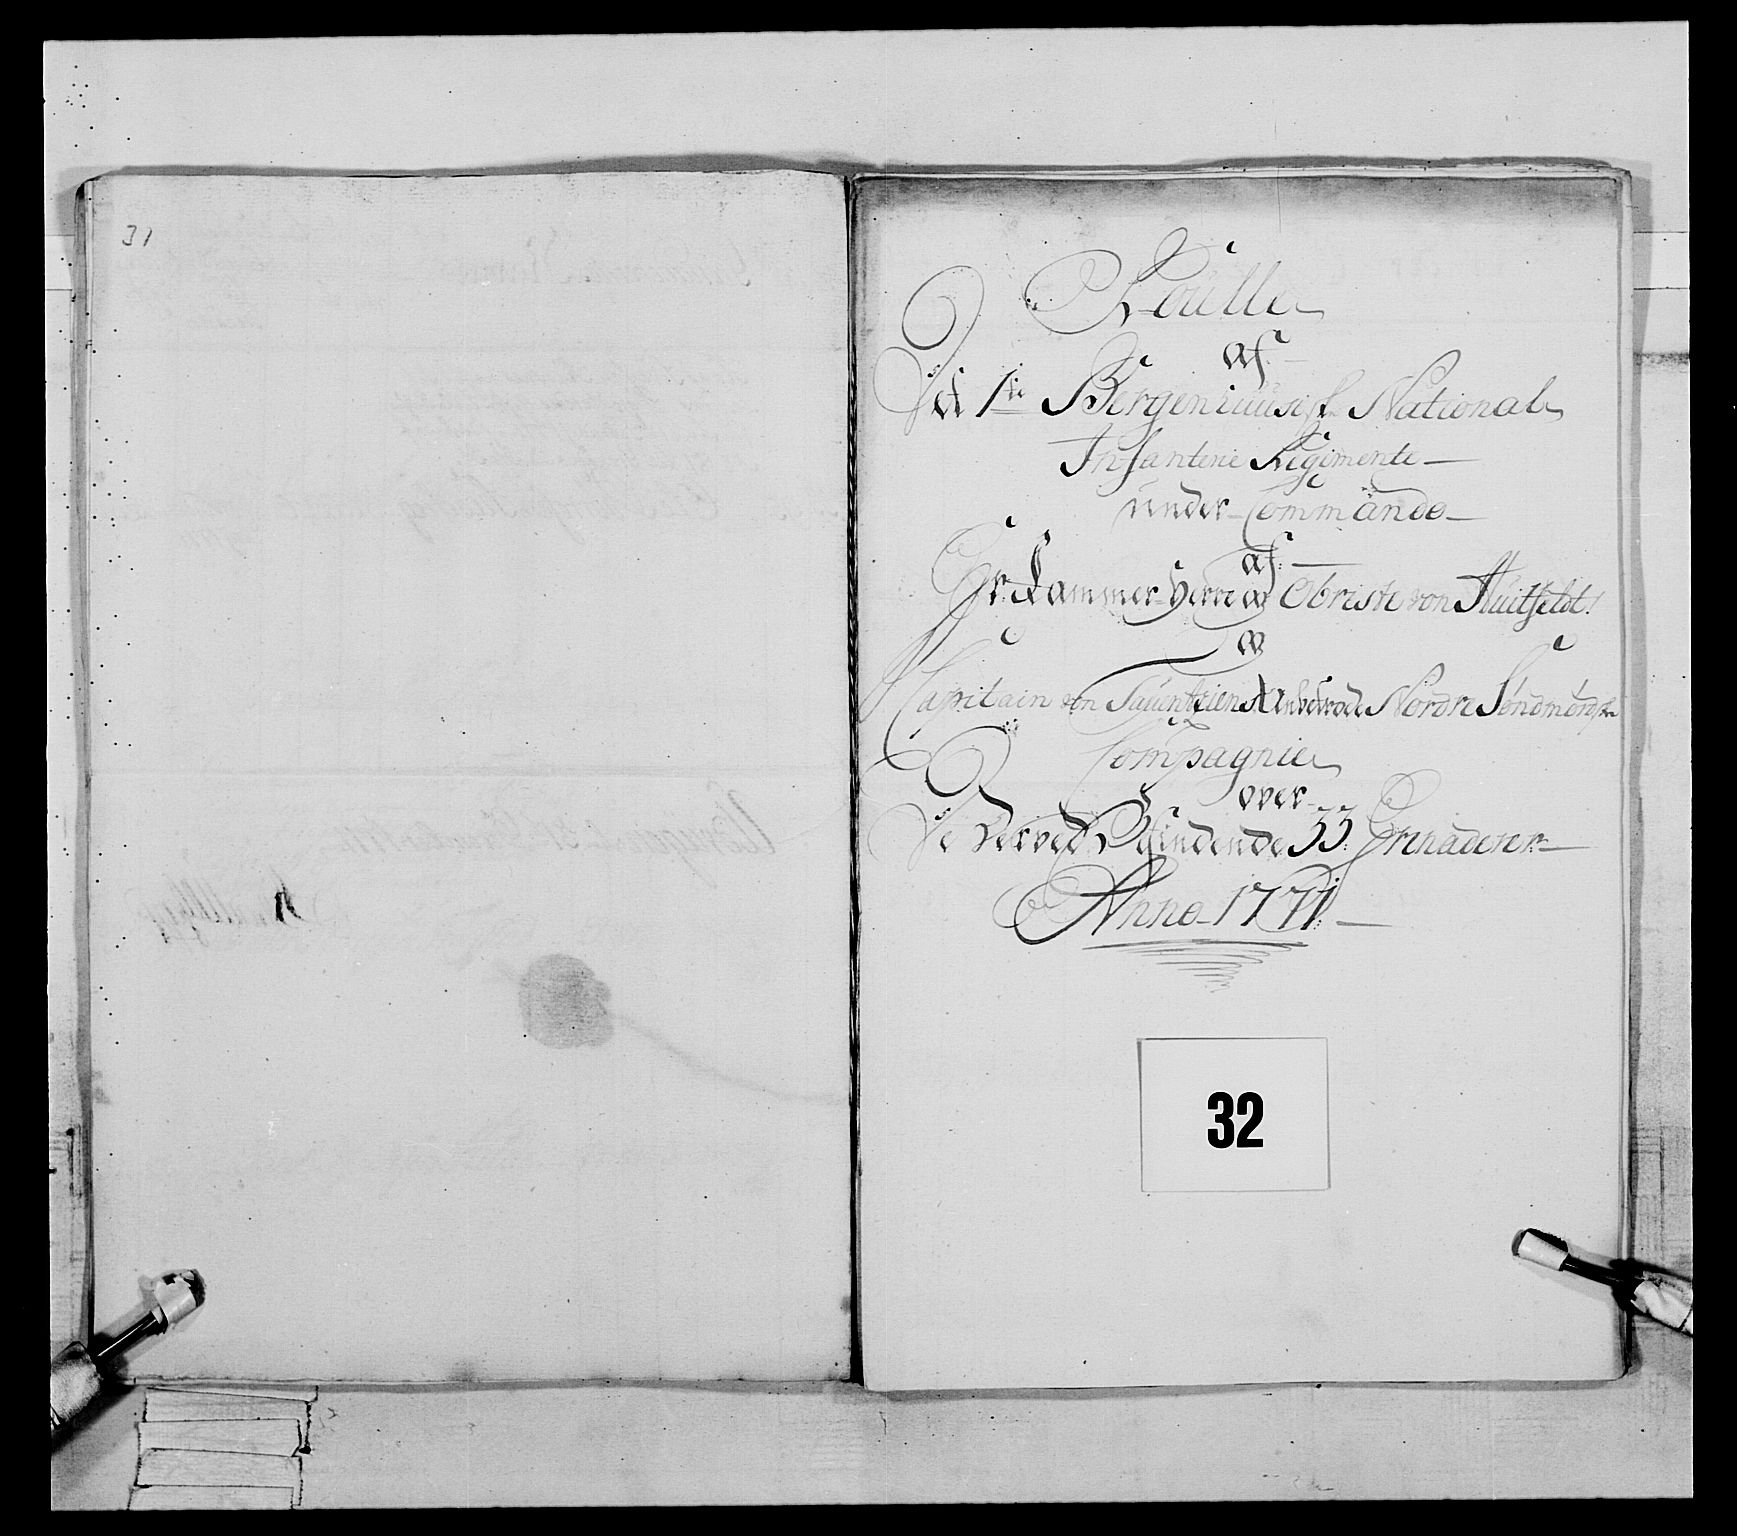 31
Roulle
af
Det 1ste Bergenhuusisk National
Infanterie Regimente
under Commando
af
Hr. Kammer-Herre og Obriste von Huitfeldt.
og
Capitain von Anbetrode Nordre Söndmörske
Compagnie
over
De derved Befindende 33 Grenaderer
Anno 1771.
32